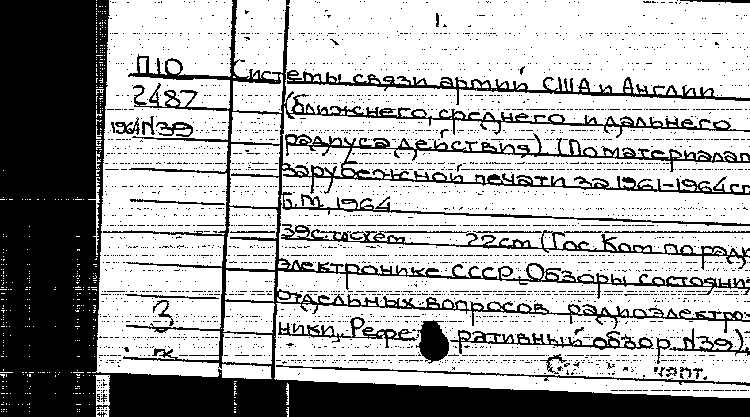 1.
П10 Системы связи армий США и Англии
2487 (ближнего, среднего и дальнего
1964 N39 радиуса действия) (По материалам
зарубежной печати за 1961-1964гг
Б.М., 1964
39с. и схем. 22см (Гос. Ком по радио
электронике СССР. Обзоры состояния
отдельных вопросов радиоэлектро-
3 ники, Рефе ративный обзор N39).
пк карт.